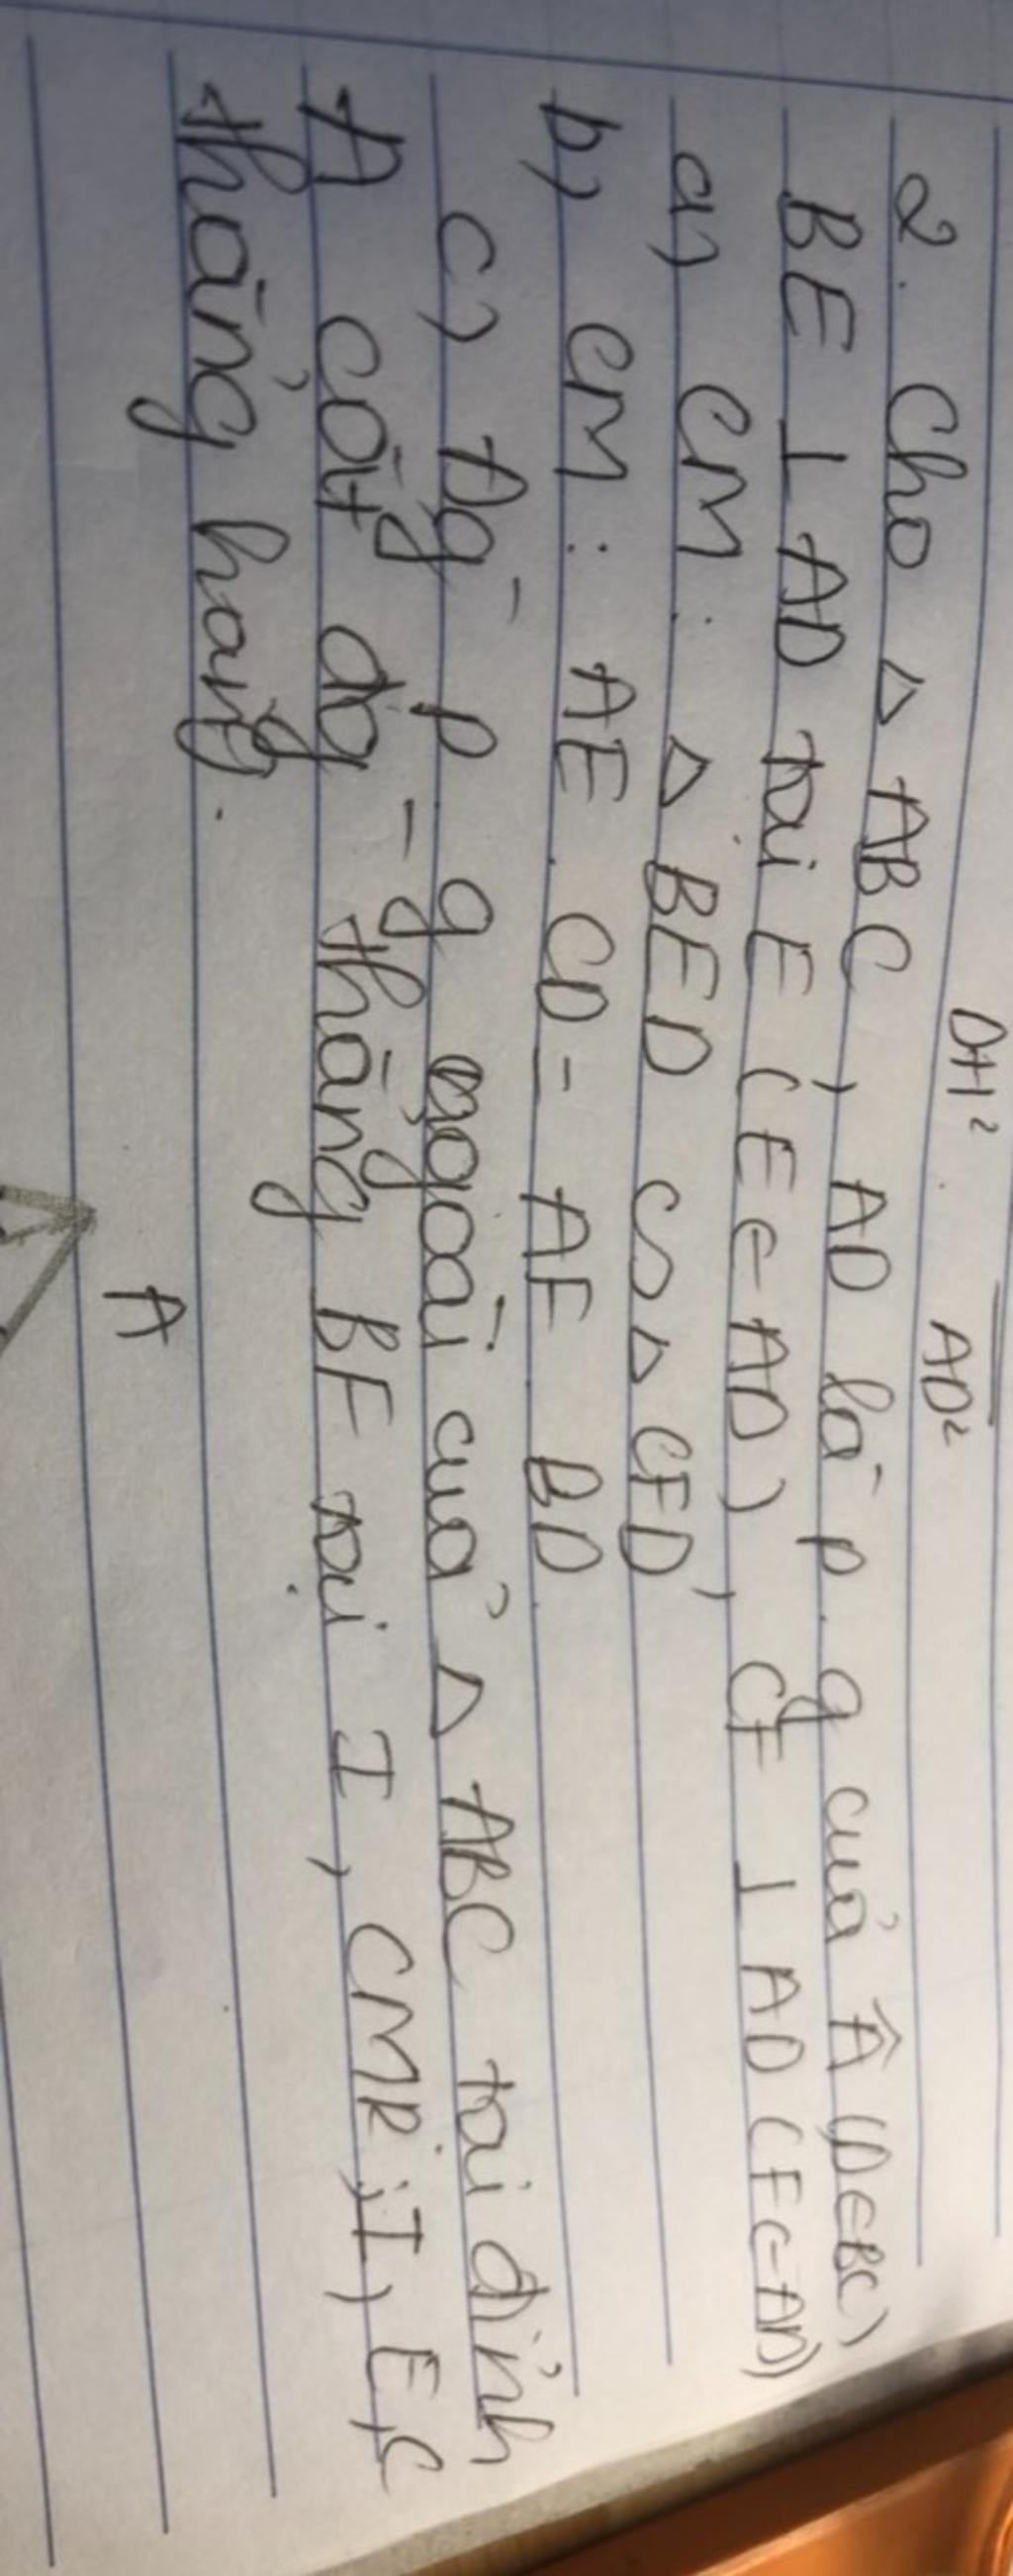 DH² AD²
2. Cho △ ABC, AD là p.g của Â (D∈BC)
BE ⊥ AD tại E (E∈AD), CF ⊥ AD (F∈AD)
a, CM: △ BED ∽ △ CFD
b, CM: AE. CD = AF. BD
c, Đg - p - g ngoài của △ ABC tại đỉnh
A cắt đg - thẳng BF tại I, CMR: I, E, C
thẳng hàng.
A